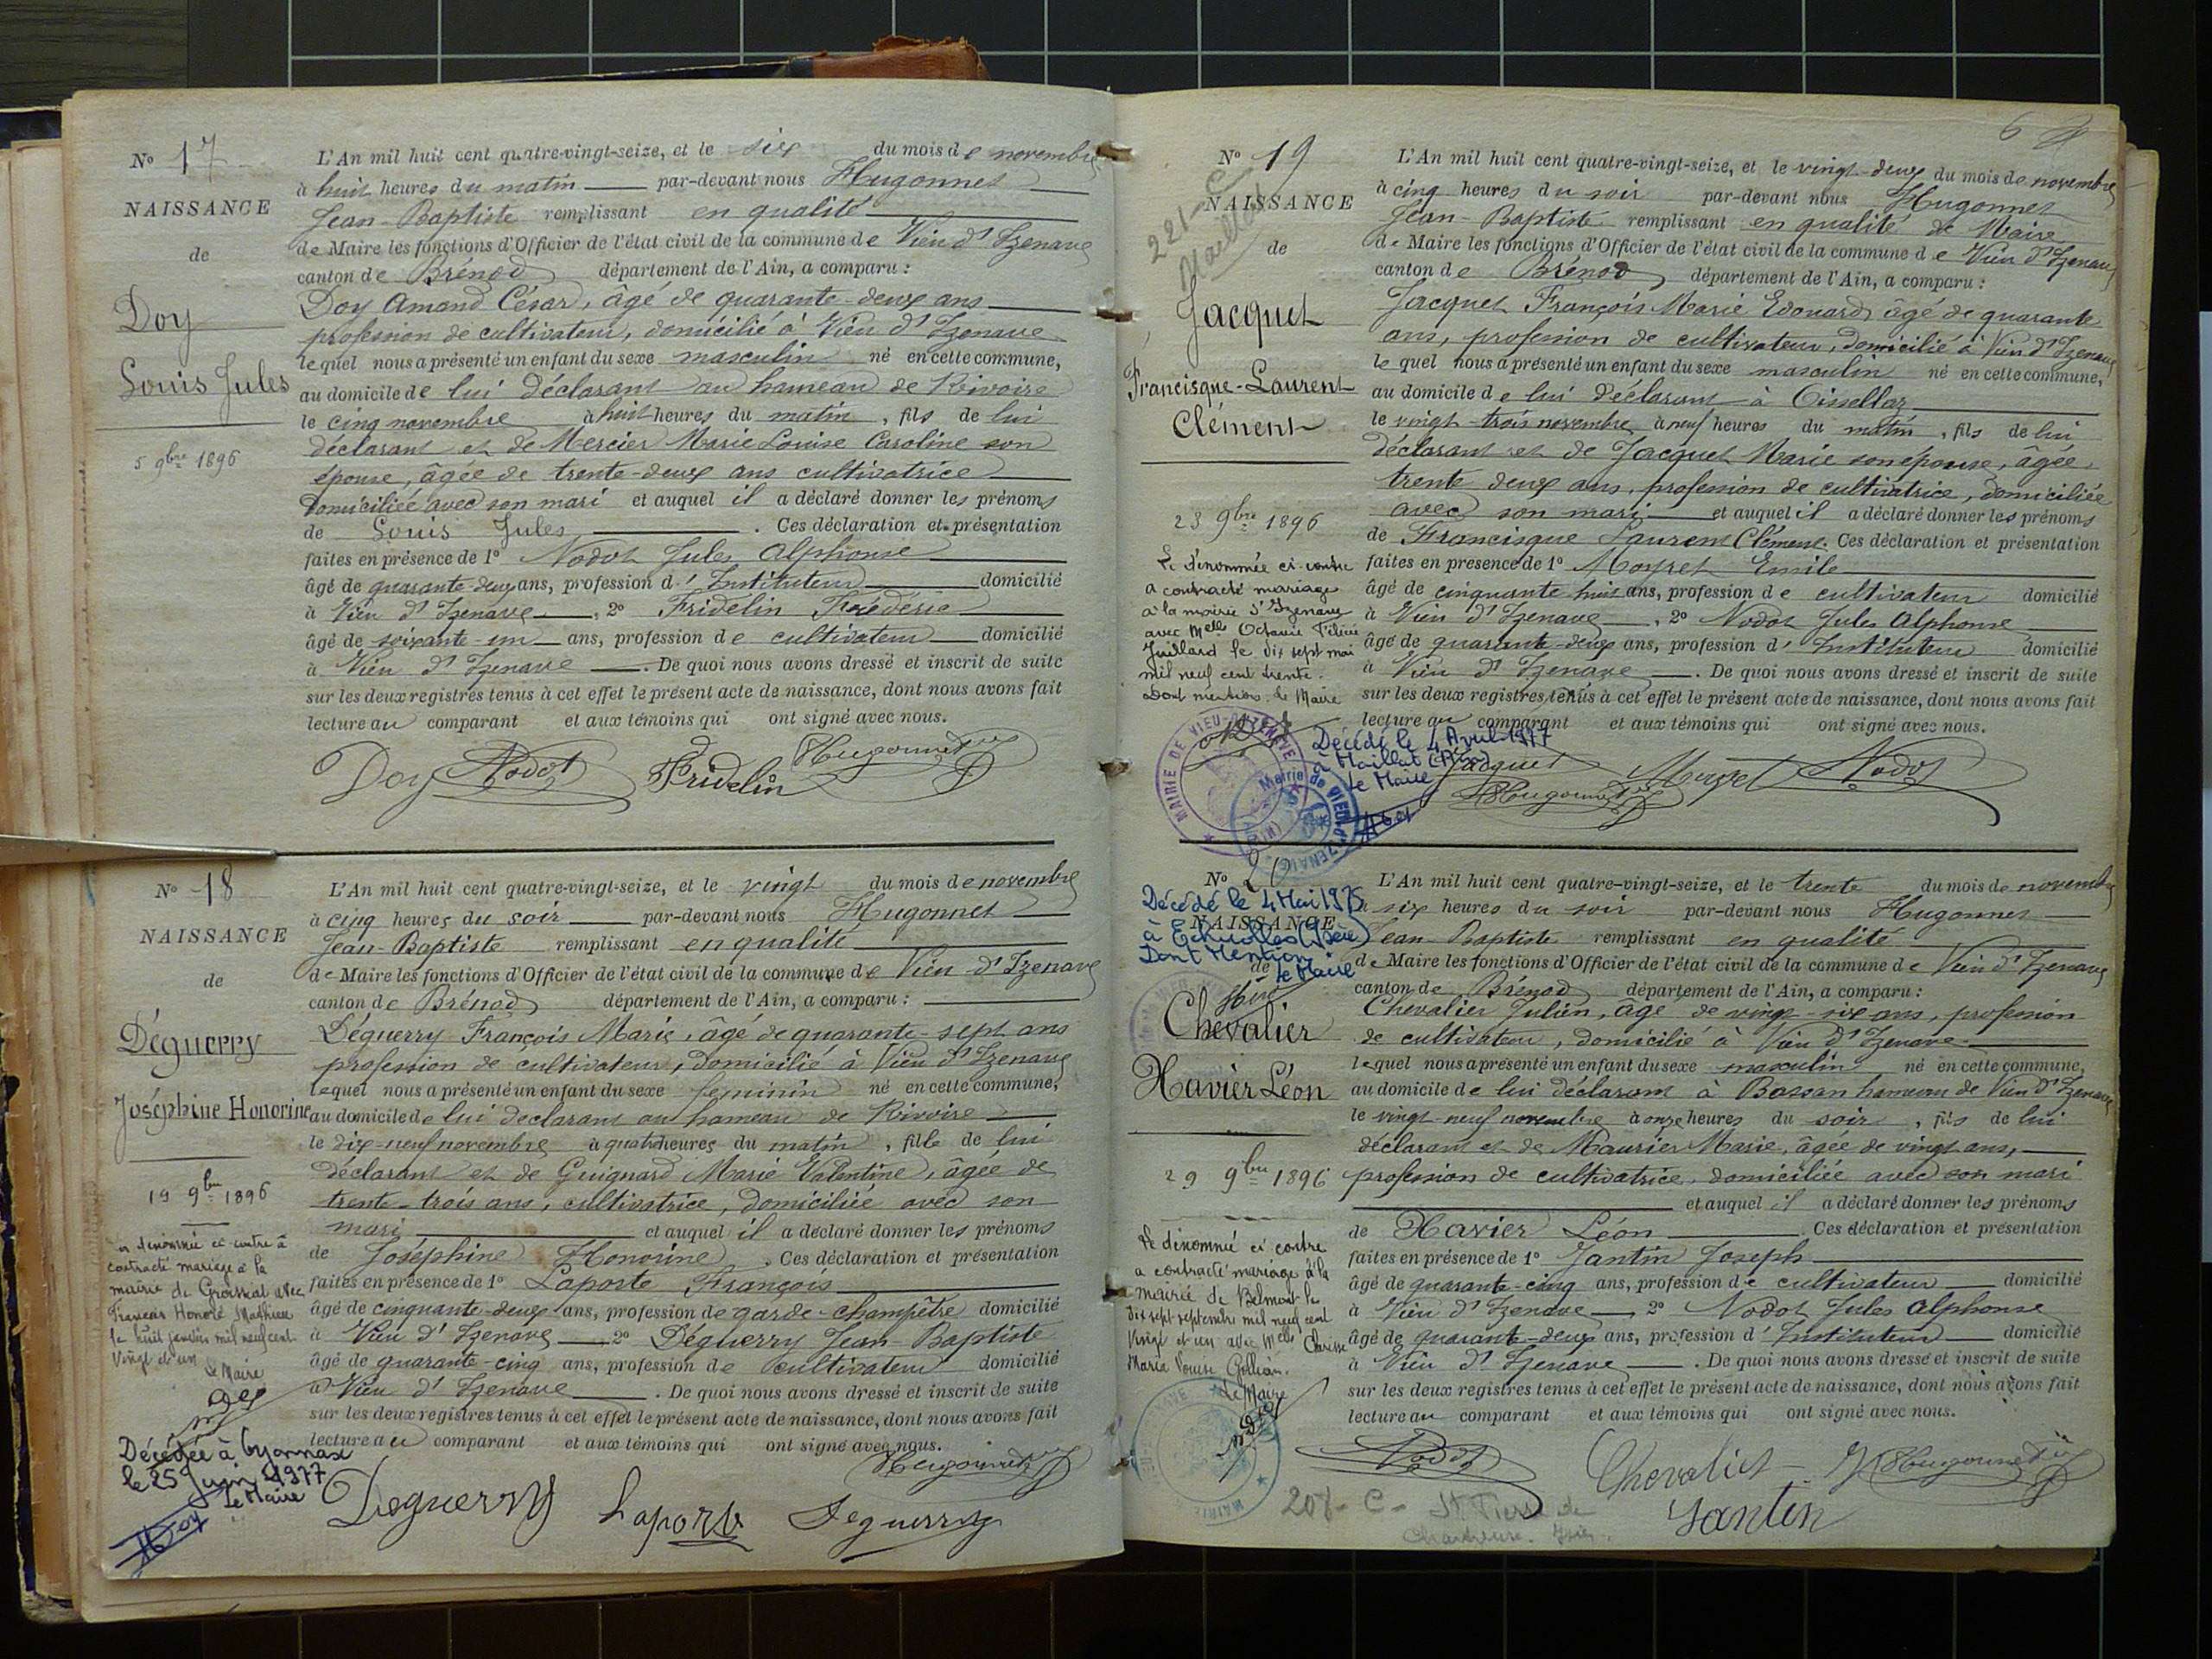 N° 17
NAISSANCE
de
Doy
Louis Jules
5 9bre 1896
L'An mil huit cent quatre-vingt-seize, et le six du mois de novembre
à huit heures du matin par-devant nous Hugonnet
Jean-Baptiste remplissant en qualité
de Maire les fonctions d'Officier de l'état civil de la commune de Vieu d'Izenave
canton de Brénod département de l'Ain, a comparu :
Doy Amand César, âgé de quarante-deux ans
profession de cultivateur, domicilié à Vieu d'Izenave
lequel nous a présenté un enfant du sexe masculin né en cette commune,
au domicile de lui déclarant au hameau de Rivoire
le cinq novembre à huit heures du matin, fils de lui
déclarant et de Mercier Marie Louise Caroline son
épouse, âgée de trente-deux ans cultivatrice
domiciliée avec son mari et auquel il a déclaré donner les prénoms
de Louis Jules. Ces déclaration et présentation
faites en présence de 1° Nodot Jules Alphonse
âgé de quarante-deux ans, profession d'Instituteur domicilié
à Vieu d'Izenave, 2° Fridelin Frédéric
âgé de soixante-un ans, profession de cultivateur domicilié
à Vieu d'Izenave. De quoi nous avons dressé et inscrit de suite
sur les deux registres tenus à cet effet le présent acte de naissance, dont nous avons fait
lecture au comparant et aux témoins qui ont signé avec nous.
Doy Nodot Fridelin Hugonnet
N° 18
NAISSANCE
de
Déguerry
Joséphine Honorine
19 9bre 1896
La dénommée ci-contre a
contracté mariage à la
mairie de Groissiat avec
François Honoré Mathieu
le huit janvier mil neuf cent
vingt et un
Le Maire
Décédée à Oyonnax
le 25 Juin 1977
Le Maire
L'An mil huit cent quatre-vingt-seize, et le vingt du mois de novembre
à cinq heures du soir par-devant nous Hugonnet
Jean-Baptiste remplissant en qualité
de Maire les fonctions d'Officier de l'état civil de la commune de Vieu-d'Izenave
canton de Brénod département de l'Ain, a comparu :
Déguerry François Marie, âgé de quarante-sept ans
profession de cultivateur, domicilié à Vieu d'Izenave
lequel nous a présenté un enfant du sexe féminin né en cette commune,
au domicile de lui déclarant au hameau de Rivoire
le dix-neuf novembre à quatre heures du matin, fille de lui
déclarant et de Guignard Marie Valentine, âgée de
trente-trois ans, cultivatrice, domiciliée avec son
mari et auquel il a déclaré donner les prénoms
de Joséphine Honorine. Ces déclaration et présentation
faites en présence de 1° Laporte François
âgé de cinquante-deux ans, profession de garde-champêtre domicilié
à Vieu d'Izenave 2° Déguerry Jean-Baptiste
âgé de quarante-cinq ans, profession de cultivateur domicilié
à Vieu d'Izenave. De quoi nous avons dressé et inscrit de suite
sur les deux registres tenus à cet effet le présent acte de naissance, dont nous avons fait
lecture au comparant et aux témoins qui ont signé avec nous.
Hugonnet
Deguerry Laporte Deguerry
6
N° 19
221-C
Maillat
NAISSANCE
de
Jacquet
Francisque-Laurent
Clément
23 9bre 1896
Le dénommée ci-contre
a contracté mariage
à la mairie d'Izenave
avec Melle Octavie Félicie
Juillard le dix sept mai
mil neuf cent trente.
Dont mention. Le Maire
Décédé le 4 Avril 1977
à Maillat (Ain)
Le Maire
MAIRIE DE VIEU-D'IZENAVE
Mairie de VIEU D'IZENAVE (AIN)
L'An mil huit cent quatre-vingt-seize, et le vingt-deux du mois de novembre
à cinq heures du soir par-devant nous Hugonnet
Jean-Baptiste remplissant en qualité de Maire
de Maire les fonctions d'Officier de l'état civil de la commune de Vieu d'Izenave
canton de Brénod département de l'Ain, a comparu :
Jacquet François Marie Edouard, âgé de quarante
ans, profession de cultivateur, domicilié à Vieu d'Izenave
lequel nous a présenté un enfant du sexe masculin né en cette commune,
au domicile de lui déclarant à Oisellaz
le vingt-trois novembre à neuf heures du matin, fils de lui
déclarant et de Jacquet Marie son épouse, âgée
trente deux ans, profession de cultivatrice, domiciliée
avec son mari et auquel il a déclaré donner les prénoms
de Francisque Laurent Clément. Ces déclaration et présentation
faites en présence de 1° Moyret Emile
âgé de cinquante huit ans, profession de cultivateur domicilié
à Vieu d'Izenave, 2° Nodot Jules Alphonse
âgé de quarante-deux ans, profession d'Instituteur domicilié
à Vieu d'Izenave. De quoi nous avons dressé et inscrit de suite
sur les deux registres tenus à cet effet le présent acte de naissance, dont nous avons fait
lecture au comparant et aux témoins qui ont signé avec nous.
Jacquet Moyret Nodot
Hugonnet
N° 20
Décédé le 4 Mai 1975
NAISSANCE
à Echirolles (Isère)
Dont Mention
de
Le Maire
Chevalier
Xavier Léon
29 9bre 1896
Le dénommé ci contre
a contracté mariage à la
mairie de Belmont le
dix sept septembre mil neuf cent
vingt et un avec Melle Clarisse
Maria Louise Gollian.
Le Maire
L'An mil huit cent quatre-vingt-seize, et le trente du mois de novembre
à six heures du soir par-devant nous Hugonnet
Jean-Baptiste remplissant en qualité
de Maire les fonctions d'Officier de l'état civil de la commune de Vieu d'Izenave
canton de Brénod département de l'Ain, a comparu :
Chevalier Julien, âgé de vingt-six ans, profession
de cultivateur, domicilié à Vieu d'Izenave.
lequel nous a présenté un enfant du sexe masculin né en cette commune,
au domicile de lui déclarant à Bossan hameau de Vieu d'Izenave
le vingt-neuf novembre à onze heures du soir, fils de lui
déclarant et de Maurier Marie, âgée de vingt ans,
profession de cultivatrice, domiciliée avec son mari
et auquel il a déclaré donner les prénoms
de Xavier Léon Ces déclaration et présentation
faites en présence de 1° Jantin Joseph
âgé de quarante-cinq ans, profession de cultivateur domicilié
à Vieu d'Izenave 2° Nodot Jules Alphonse
âgé de quarante-deux ans, profession d'Instituteur domicilié
à Vieu d'Izenave. De quoi nous avons dressé et inscrit de suite
sur les deux registres tenus à cet effet le présent acte de naissance, dont nous avons fait
lecture au comparant et aux témoins qui ont signé avec nous.
Nodot Chevalier Hugonnet
Jantin
208-C- St Pierre de
Chartreuse. Isère.